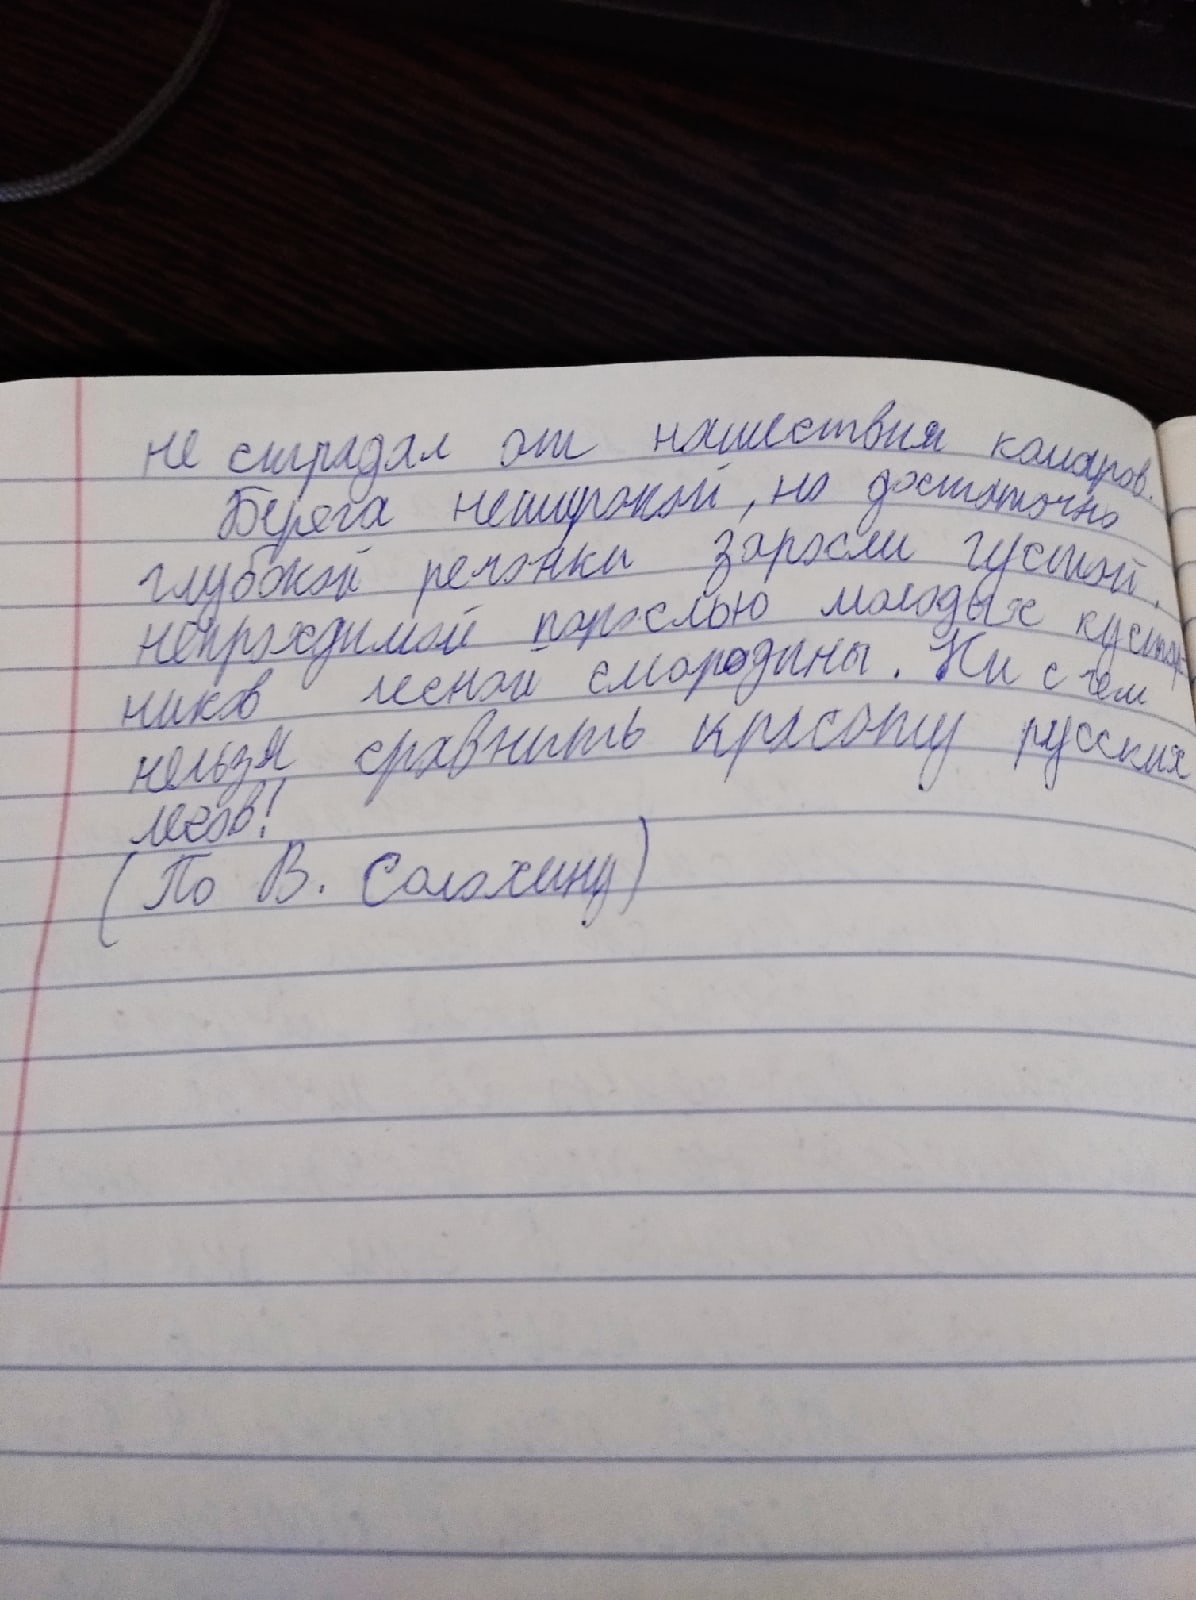 не страдал от нашествия комаров.
Берега неширокой, но достаточно
глубокой речонки заросли густой,
непроходимой порослью молодых кустар
ников лесной смородины. Ни с чем
нельзя сравнить красоту русских
лесов!
(По В. Солохину)